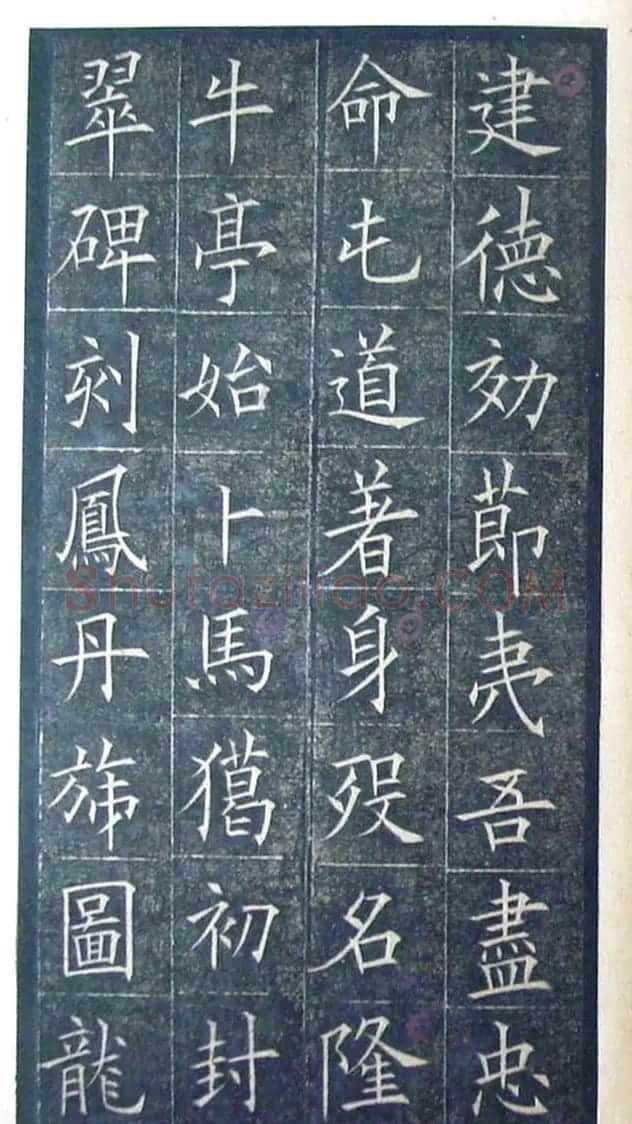 建德効莭夷吾盡忠
命屯道著身殁名隆
牛亭始卜馬獦初封
翠碑刻鳳丹旆圖龍
Shufaziliao.COM